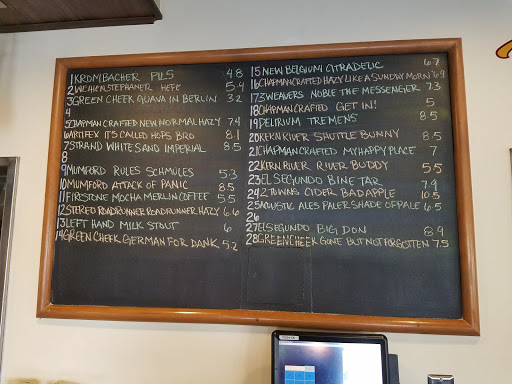 1 KROMBACHER PILS 4.8
2 WEIHENSTEPHANER HEFE 5.4
3 GREEN CHEEK GUAVA IN BERLIN 3.2
4
5 CHAPMAN CRAFTED NEW NORMAL HAZY 7.4
6 ARTIFEX IT'S CALLED HOPS BRO 8.1
7 STRAND WHITE SAND IMPERIAL 8.5
8
9 MUMFORD RULES SCHMULES 5.3
10 MUMFORD ATTACK OF PANIC 8.5
11 FIRESTONE MOCHA MERLIN COFFEE 5.5
12 STEREO ROADRUNNER ROADRUNNER HAZY 6.6
13 LEFT HAND MILK STOUT 6
14 GREEN CHEEK GERMAN FOR DANK 5.2
15 NEW BELGIUM CITRADELIC 6.7
16 CHAPMAN CRAFTED HAZY LIKE A SUNDAY MORN 6.9
17 3 WEAVERS NOBLE THE MESSENGER 7.3
18 CHAPMAN CRAFTED GET IN! 5
19 DELIRIUM TREMENS 8.5
20 KERN RIVER SHUTTLE BUNNY 8.5
21 CHAPMAN CRAFTED MY HAPPY PLACE 7
22 KIRN RIVER RIVER BUDDY 5.5
23 EL SEGUNDO BINE TAR 7.9
24 2 TOWNS CIDER BAD APPLE 10.5
25 ACOUSTIC ALES PALER SHADE OF PALE 6.5
26
27 EL SEGUNDO BIG DON 8.9
28 GREEN CHEEK GONE BUT NOT FORGOTTEN 7.5